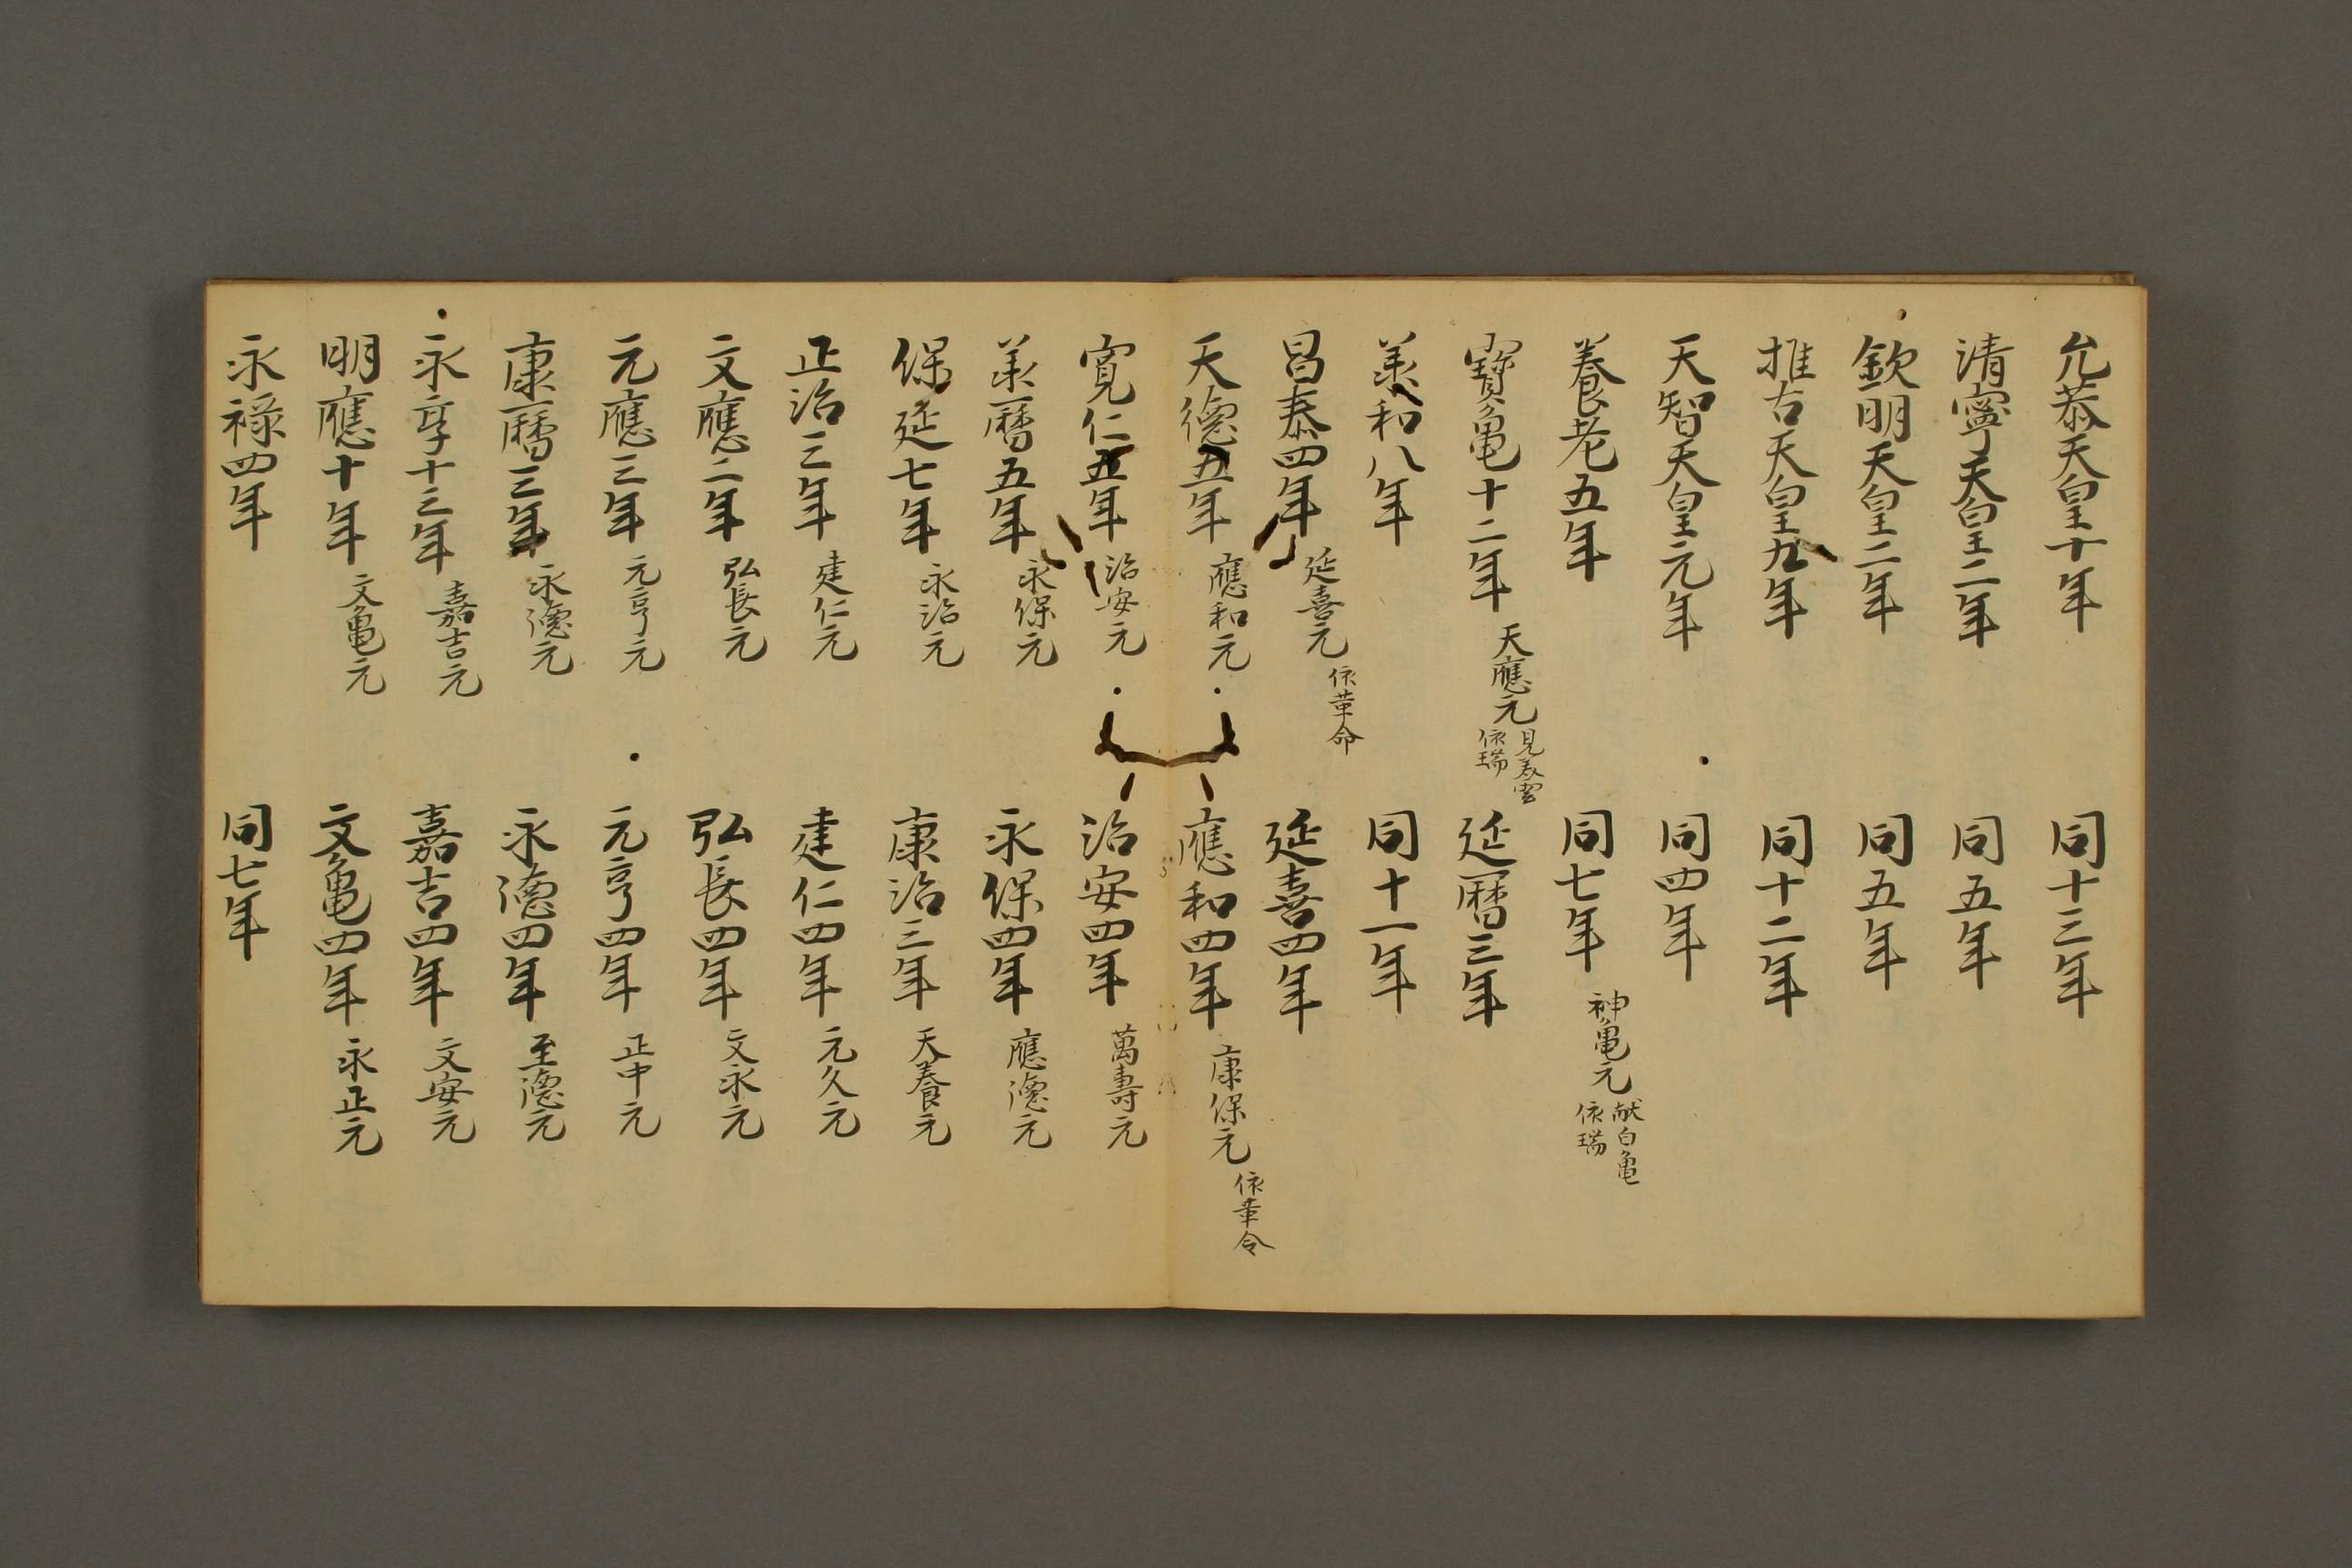 允恭天皇十年 同十三年
清寧天皇二年 同五年
欽明天皇二年 同五年
推古天皇九年 同十二年
天智天皇元年 同四年
養老五年 同七年 神亀元 献白亀 依瑞
寶亀十二年 天應元 見美雲 依瑞 延暦三年
承和八年 同十一年
昌泰四年 延喜元 依革命 延喜四年
天德五年 應和元 應和四年 康保元 依革令
寛仁五年 治安元 治安四年 萬壽元
承暦五年 永保元 永保四年 應德元
保延七年 永治元 康治三年 天養元
正治三年 建仁元 建仁四年 元久元
文應二年 弘長元 弘長四年 文永元
元應三年 元亨元 元亨四年 正中元
康暦三年 永德元 永德四年 至德元
永享十三年 嘉吉元 嘉吉四年 文安元
明應十年 文亀元 文亀四年 永正元
永禄四年 同七年